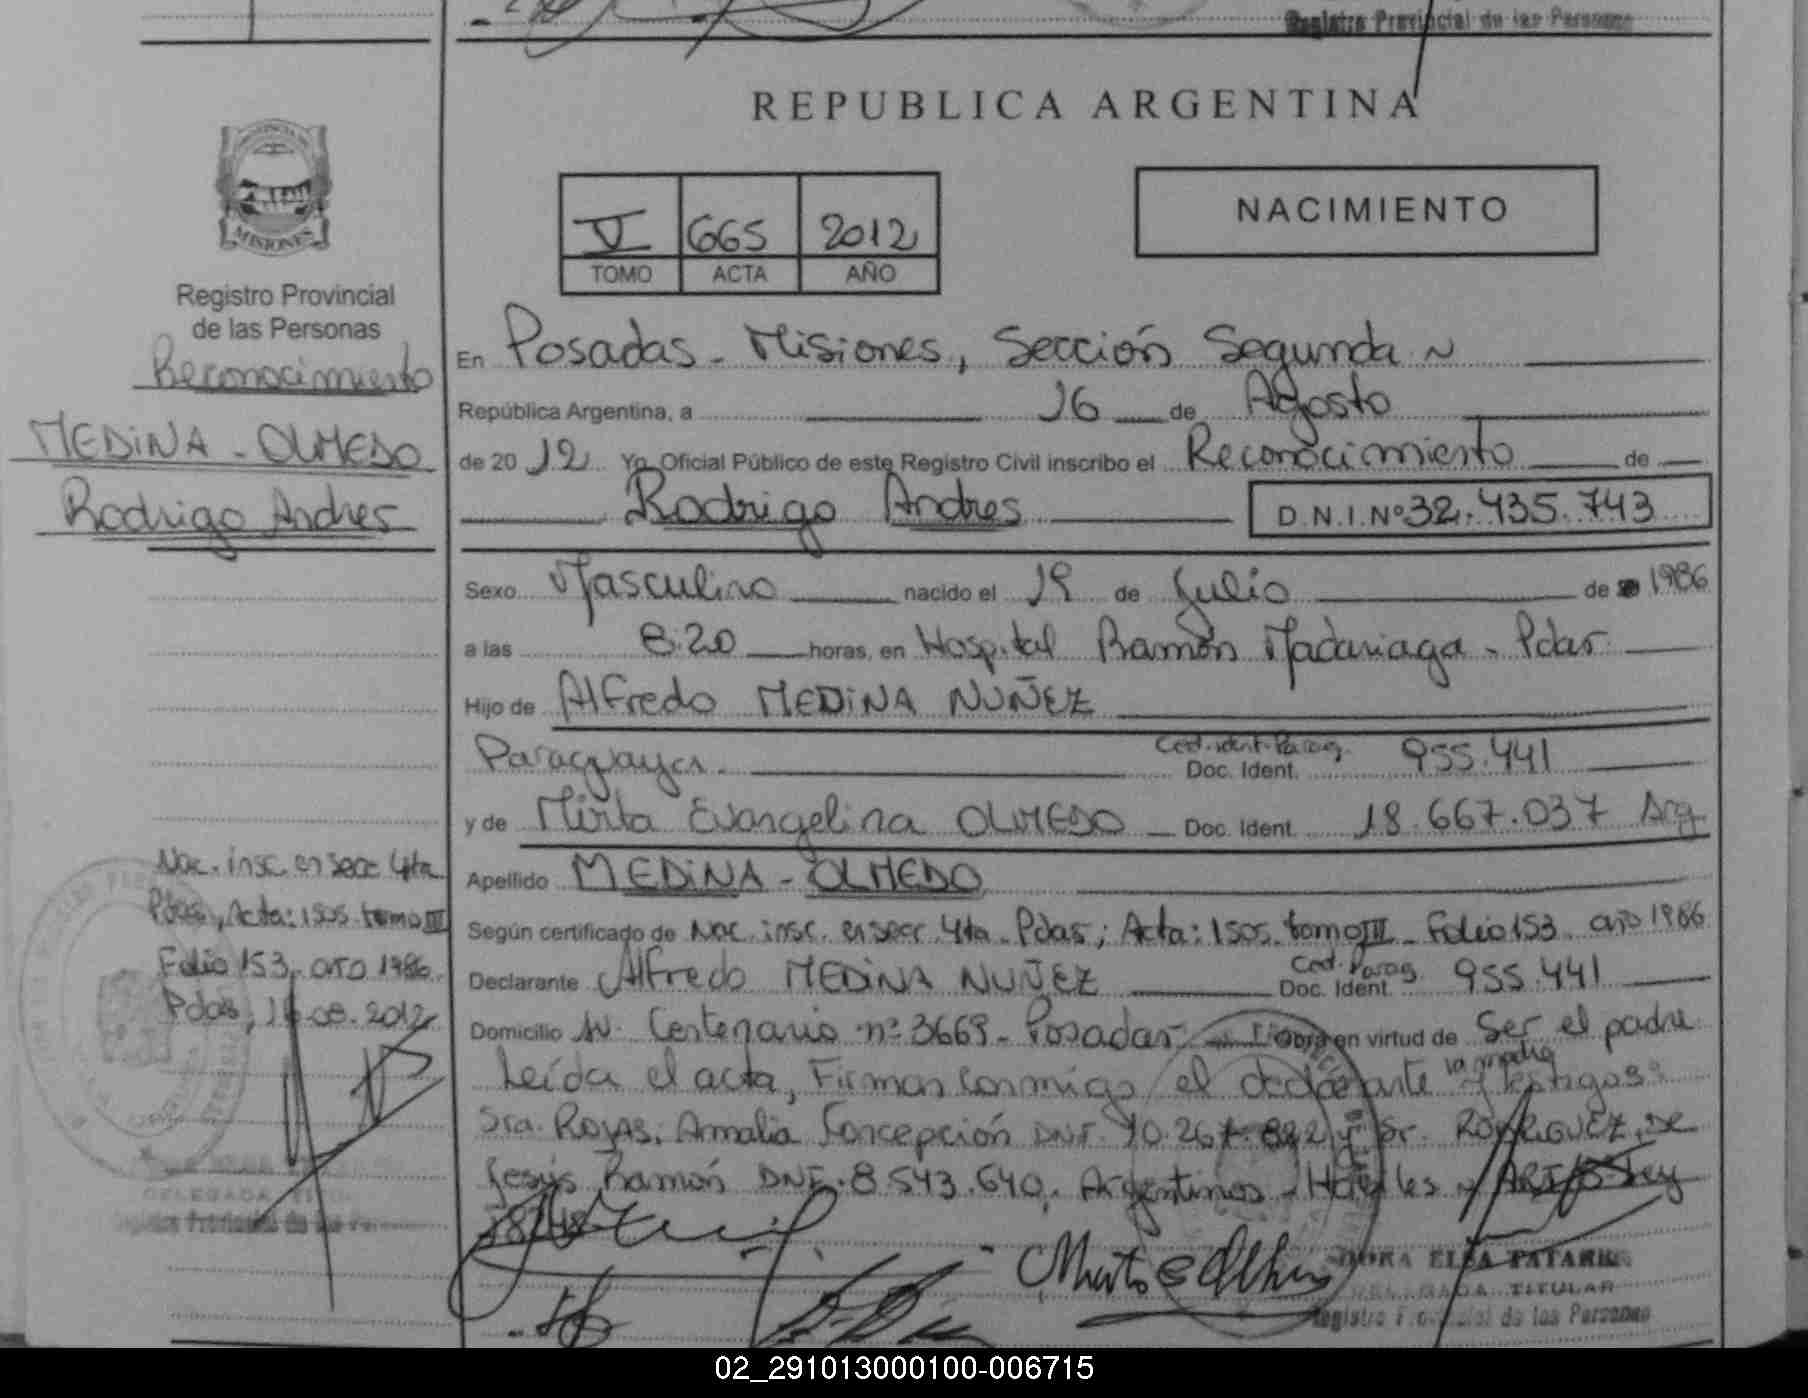 Registro Provincial de las Personas
REPUBLICA ARGENTINA
MISIONES
V 665 2012
TOMO ACTA AÑO
NACIMIENTO
Registro Provincial
de las Personas
Reconocimiento
MEDINA - OLMEDO
Rodrigo Andres
En Posadas - Misiones, Sección Segunda
República Argentina, a 16 de Agosto
de 2012 Yo, Oficial Público de este Registro Civil inscribo el Reconocimiento de
Rodrigo Andres D.N.I.Nº 32.435.743
Sexo Masculino nacido el 19 de Julio de 1986
a las 8:20 horas, en Hospital Ramón Madariaga - Pdas.
Hijo de Alfredo MEDINA NUÑEZ
Paraguaya Ced. ident. Parag. Doc. Ident. 955.441
y de Mirta Evangelina OLMEDO Doc. Ident. 18.667.037 Arg
Apellido MEDINA - OLMEDO
Según certificado de Nac. insc. en secc. 4ta Pdas; Acta: 1505. tomo III - Folio 153. año 1986
Declarante Alfredo MEDINA NUÑEZ Ced. Parag. Doc. Ident. 955.441
Domicilio Av. Centenario nº 3669 - Posadas Obra en virtud de Ser el padre.
Leída el acta, Firman conmigo el declarante la madre y testigos:
Sra. ROJAS, Amalia Concepción DNI. 10.267. y Sr. RODRIGUEZ, DE
Jesús Ramón DNI. 8.543.640, Argentinos - Hábiles
Nac. insc. en secc 4ta
Pdas, Acta: 1505. tomo III
Folio 153. año 1986.
Pdas, 16.08.2012
DELEGADA TITULAR
Registro Provincial de las Personas
DORA ELSA
DELEGADA TITULAR
Registro Provincial de las Personas
02_291013000100-006715